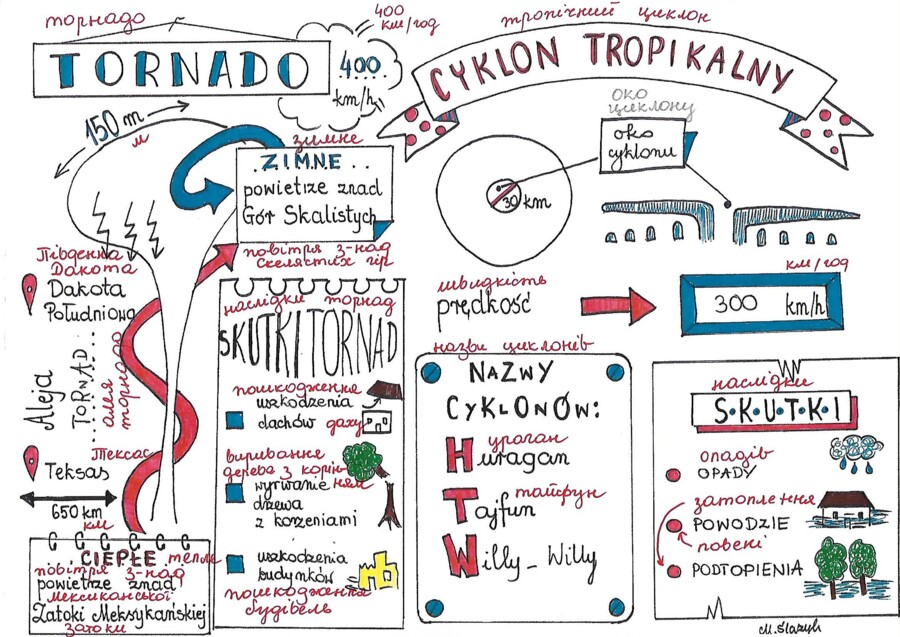 торнадо
TORNADO
400
км/год
400
km/h
150 m
м
зимне
ZIMNE
powietrze znad
Gór Skalistych
повітря з-над
скелястих гір
Південна
Дакота
Dakota
Południowa
Aleja
TORNAD
алея
торнадо
Техас
Teksas
650 km
км
CIEPŁE
тепле
повітря з-над
powietrze znad
мексиканської
Zatoki Meksykańskiej
затоки
наслідки торнад
SKUTKI TORNAD
пошкодження
uszkodzenia
dachów
даху
виривання
дерева з корін
ням
wyrwanie
drzewa
z korzeniami
uszkodzenia
budynków
пошкодження
будівель
тропічний циклон
CYKLON TROPIKALNY
око
циклону
oko
cyklonu
30 km
швидкість
prędkość
км/год
300 km/h
назви циклонів
NAZWY
CYKLONÓW:
ураган
Huragan
тайфун
Tajfun
Willy-Willy
наслідки
S·K·U·T·K·I
опадів
OPADY
затоплення
POWODZIE
повені
PODTOPIENIA
M. Ślazyk